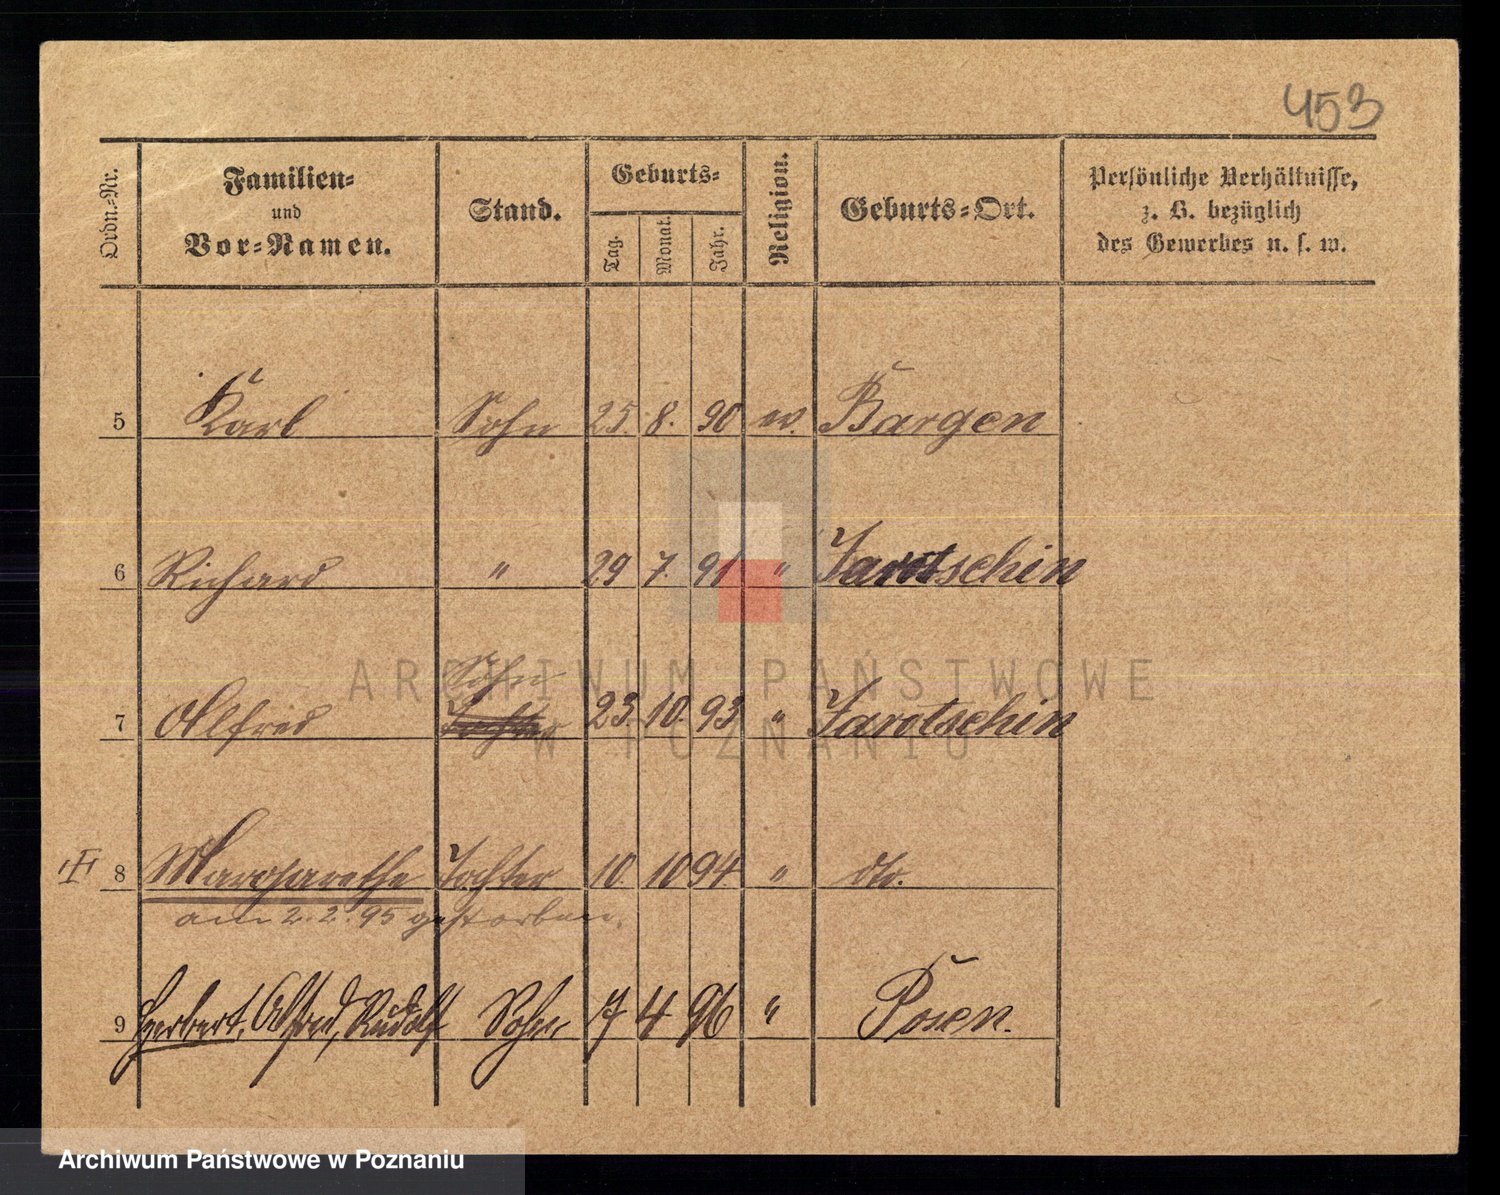 453
Ordn.-Nr.
Familien-
und
Vor-Namen.
Stand.
Geburts-
Tag.
Monat.
Jahr.
Religion.
Geburts-Ort.
Persönliche Verhältnisse,
z. B. bezüglich
des Gewerbes u. s. w.
5 Karl Sohn 25. 8. 90 ev. Bargen
6 Richard " 29 7. 91 " Jarotschin
Sohn
7 Alfred Tochter 23. 10. 93 " Jarotschin
8 Margarethe Tochter 10. 10 94 " dto.
am 2. 2. 95 gestorben.
9 Herbert, Alfred, Rudolf Sohn 17 4 96 " Posen.
ARCHIWUM PAŃSTWOWE
W POZNANIU
Archiwum Państwowe w Poznaniu